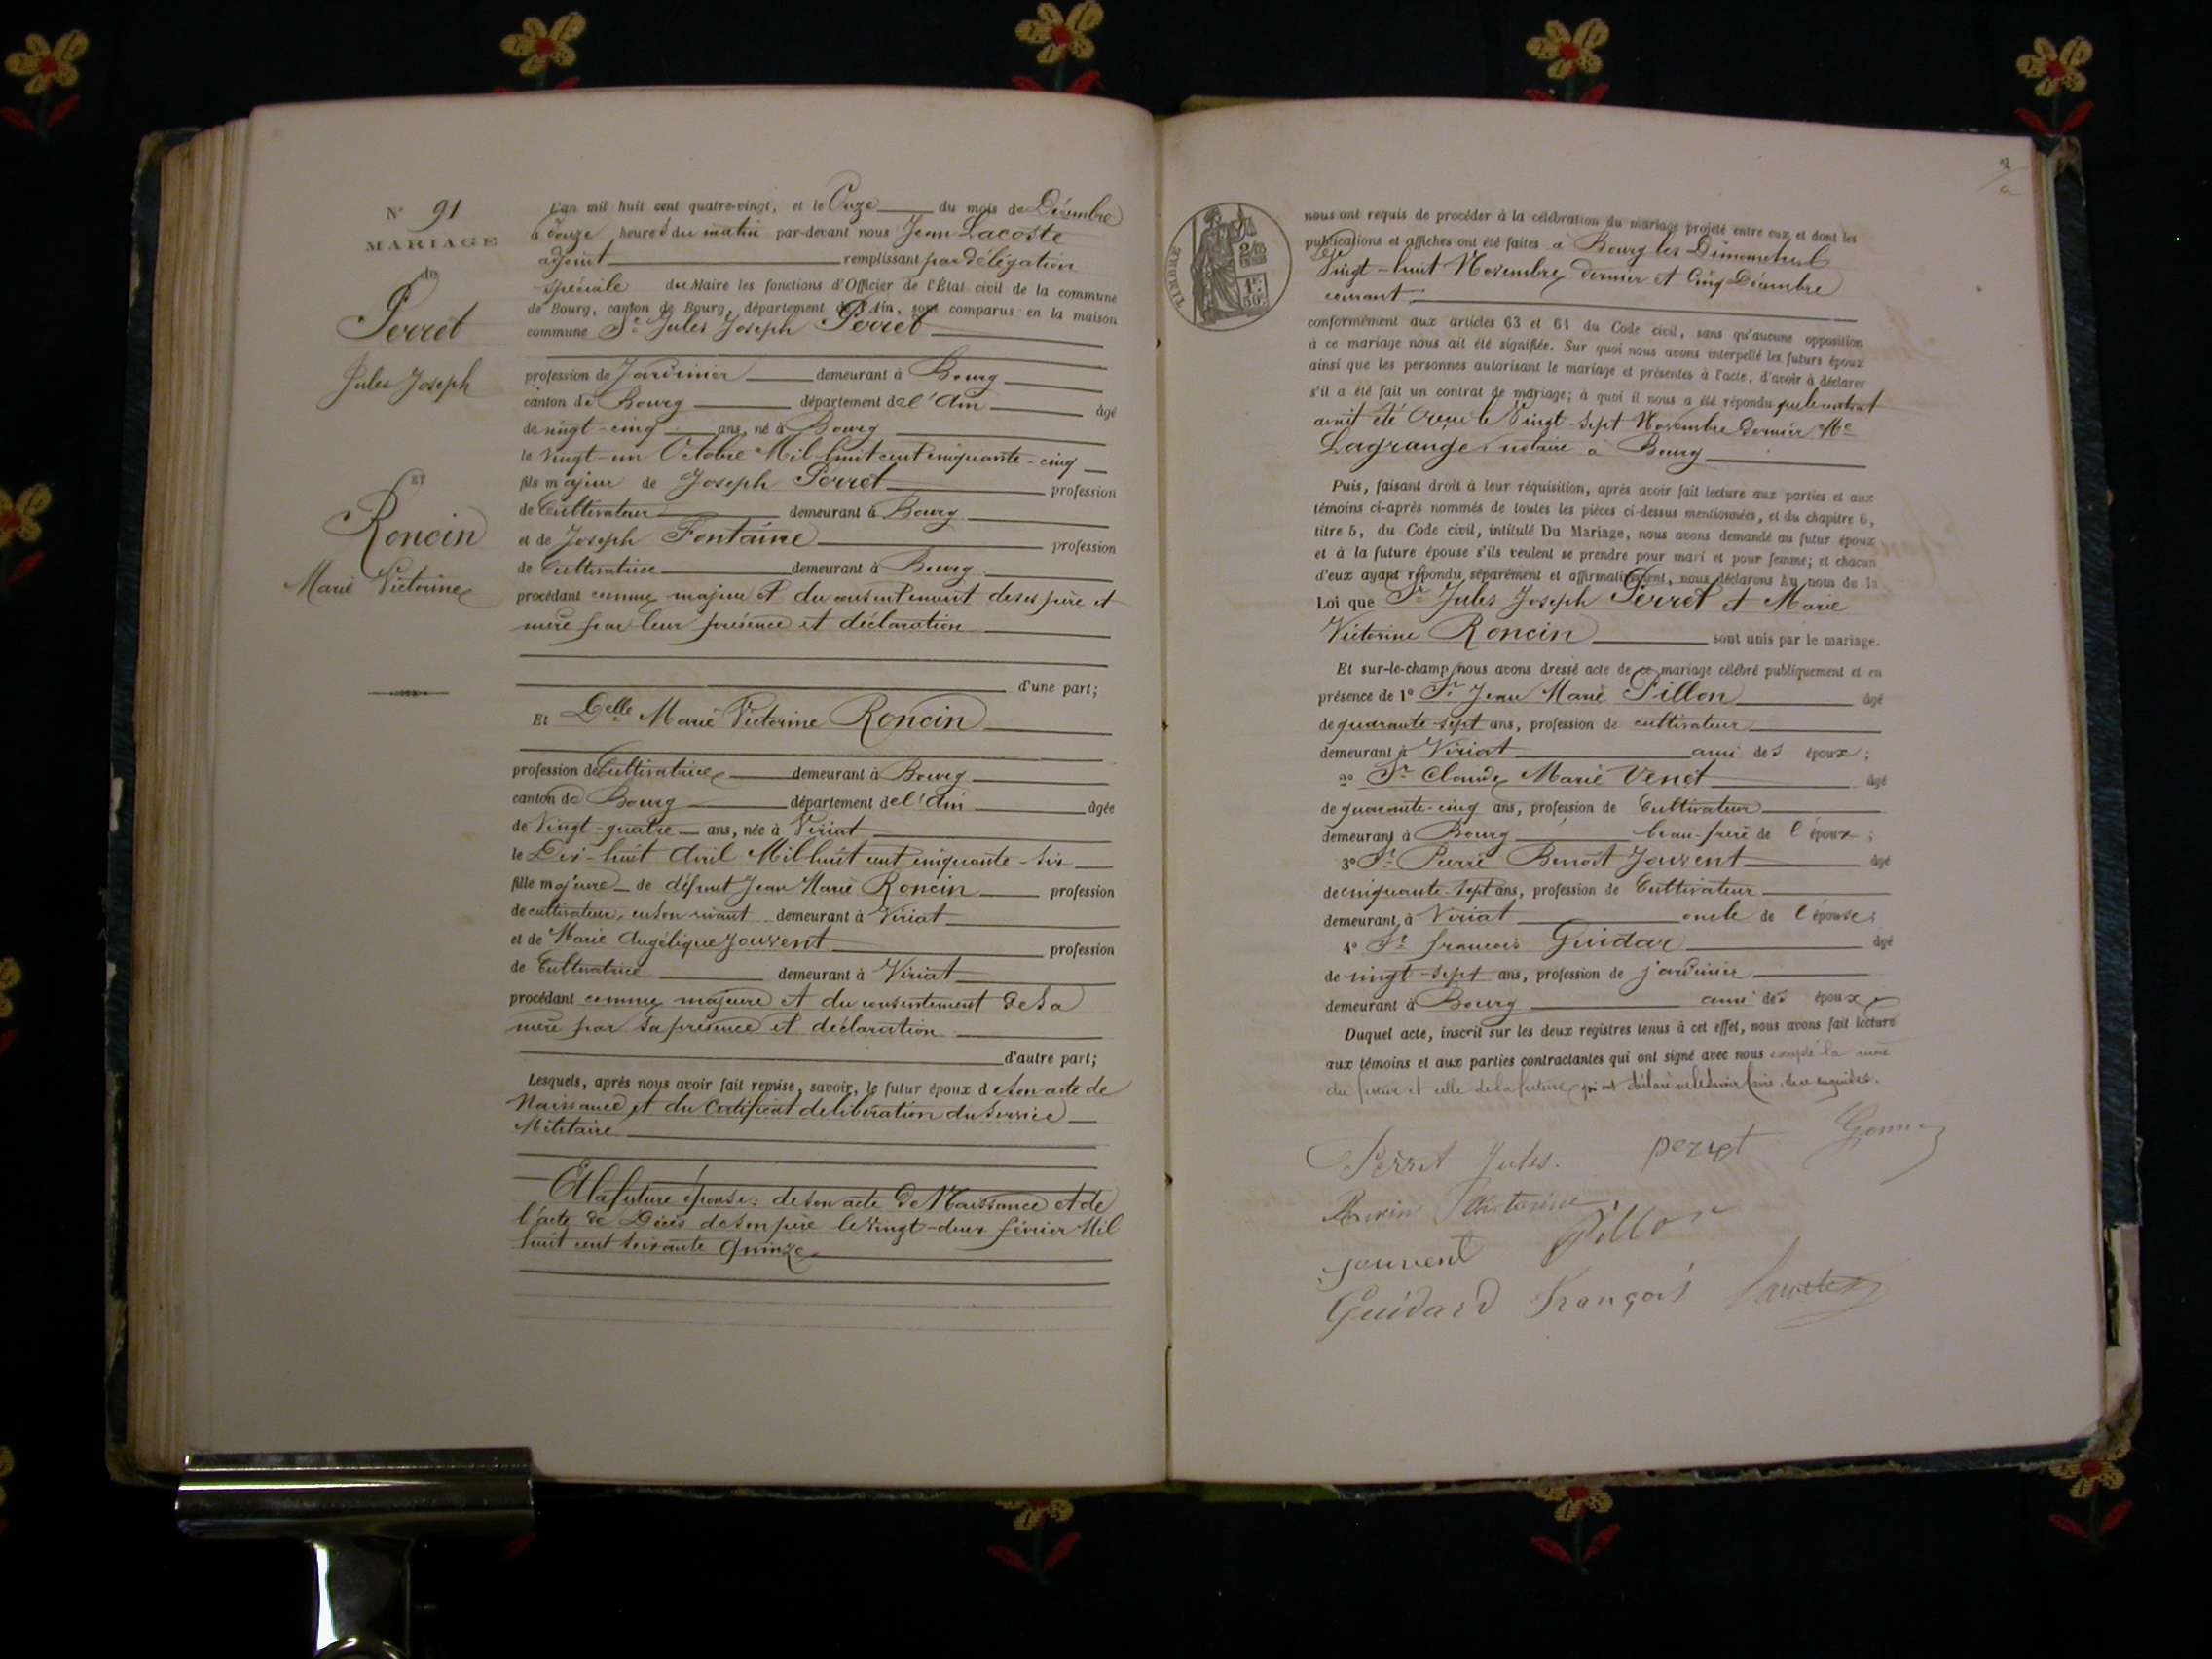 N° 91
MARIAGE
de
Perret
Jules Joseph
ET
Roncin
Marie Victorine
L'an mil huit cent quatre-vingt, et le Onze du mois de Décembre
à onze heures du matin par-devant nous Jean Lacoste
adjoint remplissant par délégation
spéciale du Maire les fonctions d'Officier de l'État civil de la commune
de Bourg, canton de Bourg, département de l'Ain, sont comparus en la maison
commune Sr Jules Joseph Perret
profession de Jardinier demeurant à Bourg
canton de Bourg département de l'Ain âgé
de vingt-cinq ans, né à Bourg
le vingt-un Octobre Mil huit cent cinquante-cinq
fils majeur de Joseph Perret profession
de Cultivateur demeurant à Bourg
et de Joseph Fontaine profession
de Cultivatrice demeurant à Bourg
procédant comme majeur et du consentement de ses père et
mère par leur présence et déclaration
d'une part;
Et Delle Marie Victorine Roncin
profession de Cultivatrice demeurant à Bourg
canton de Bourg département de l'Ain âgée
de Vingt-quatre ans, née à Viriat
le Dix-huit Avril Mil huit cent cinquante-six
fille majeure de défunt Jean Marie Roncin profession
de cultivateur, en son vivant demeurant à Viriat
et de Marie Angélique Jouvent profession
de Cultivatrice demeurant à Viriat
procédant comme majeure et du consentement de sa
mère par sa présence et déclaration
d'autre part;
Lesquels, après nous avoir fait remise, savoir, le futur époux de son acte de
Naissance et du Certificat de libération du service
Militaire
Et la future épouse: de son acte de Naissance et de
l'acte de Décès de son père le vingt-deux février Mil
huit cent soixante quinze
TIMBRE
nous ont requis de procéder à la célébration du mariage projeté entre eux et dont les
publications et affiches ont été faites à Bourg les Dimanches
Vingt-huit Novembre dernier et Cinq Décembre
courant
conformément aux articles 63 et 64 du Code civil, sans qu'aucune opposition
à ce mariage nous ait été signifiée. Sur quoi nous avons interpellé les futurs époux
ainsi que les personnes autorisant le mariage et présentes à l'acte, d'avoir à déclarer
s'il a été fait un contrat de mariage; à quoi il nous a été répondu que le contrat
avait été reçu le Vingt-sept Novembre dernier Me
Lagrange notaire à Bourg
Puis, faisant droit à leur réquisition, après avoir fait lecture aux parties et aux
témoins ci-après nommés de toutes les pièces ci-dessus mentionnées, et du chapitre 6,
titre 5, du Code civil, intitulé Du Mariage, nous avons demandé au futur époux
et à la future épouse s'ils veulent se prendre pour mari et pour femme; et chacun
d'eux ayant répondu séparément et affirmativement, nous déclarons Au nom de la
Loi que Sr Jules Joseph Perret et Marie
Victorine Roncin sont unis par le mariage.
Et sur-le-champ nous avons dressé acte de ce mariage célébré publiquement et en
présence de 1° Sr Jean Marie Pillon âgé
de quarante-sept ans, profession de cultivateur
demeurant à Viriat ami des époux;
2° Sr Claude Marie Venet âgé
de quarante-cinq ans, profession de Cultivateur
demeurant à Bourg beau-frère de l'époux;
3° Sr Pierre Benoît Jouvent âgé
de cinquante-sept ans, profession de Cultivateur
demeurant à Viriat oncle de l'épouse;
4° Sr françois Guidar âgé
de vingt-sept ans, profession de jardinier
demeurant à Bourg ami des époux
Duquel acte, inscrit sur les deux registres tenus à cet effet, nous avons fait lecture
aux témoins et aux parties contractantes qui ont signé avec nous excepté la mère
du futur et celle de la future qui ont déclaré ne le savoir faire, de ce enquises.
Perret Jules. perret
Roncin Victorine
jouvent Pillon
Guidard François Lacoste